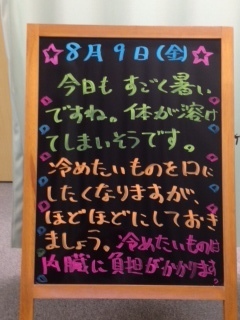 ☆8月9日(金)☆
今日もすごく暑い
ですね。体が溶け
てしまいそうです。
冷めたいものを口に
したくなりますが、
ほどほどにしておき
ましょう。冷めたいものは
内臓に負担がかかります。